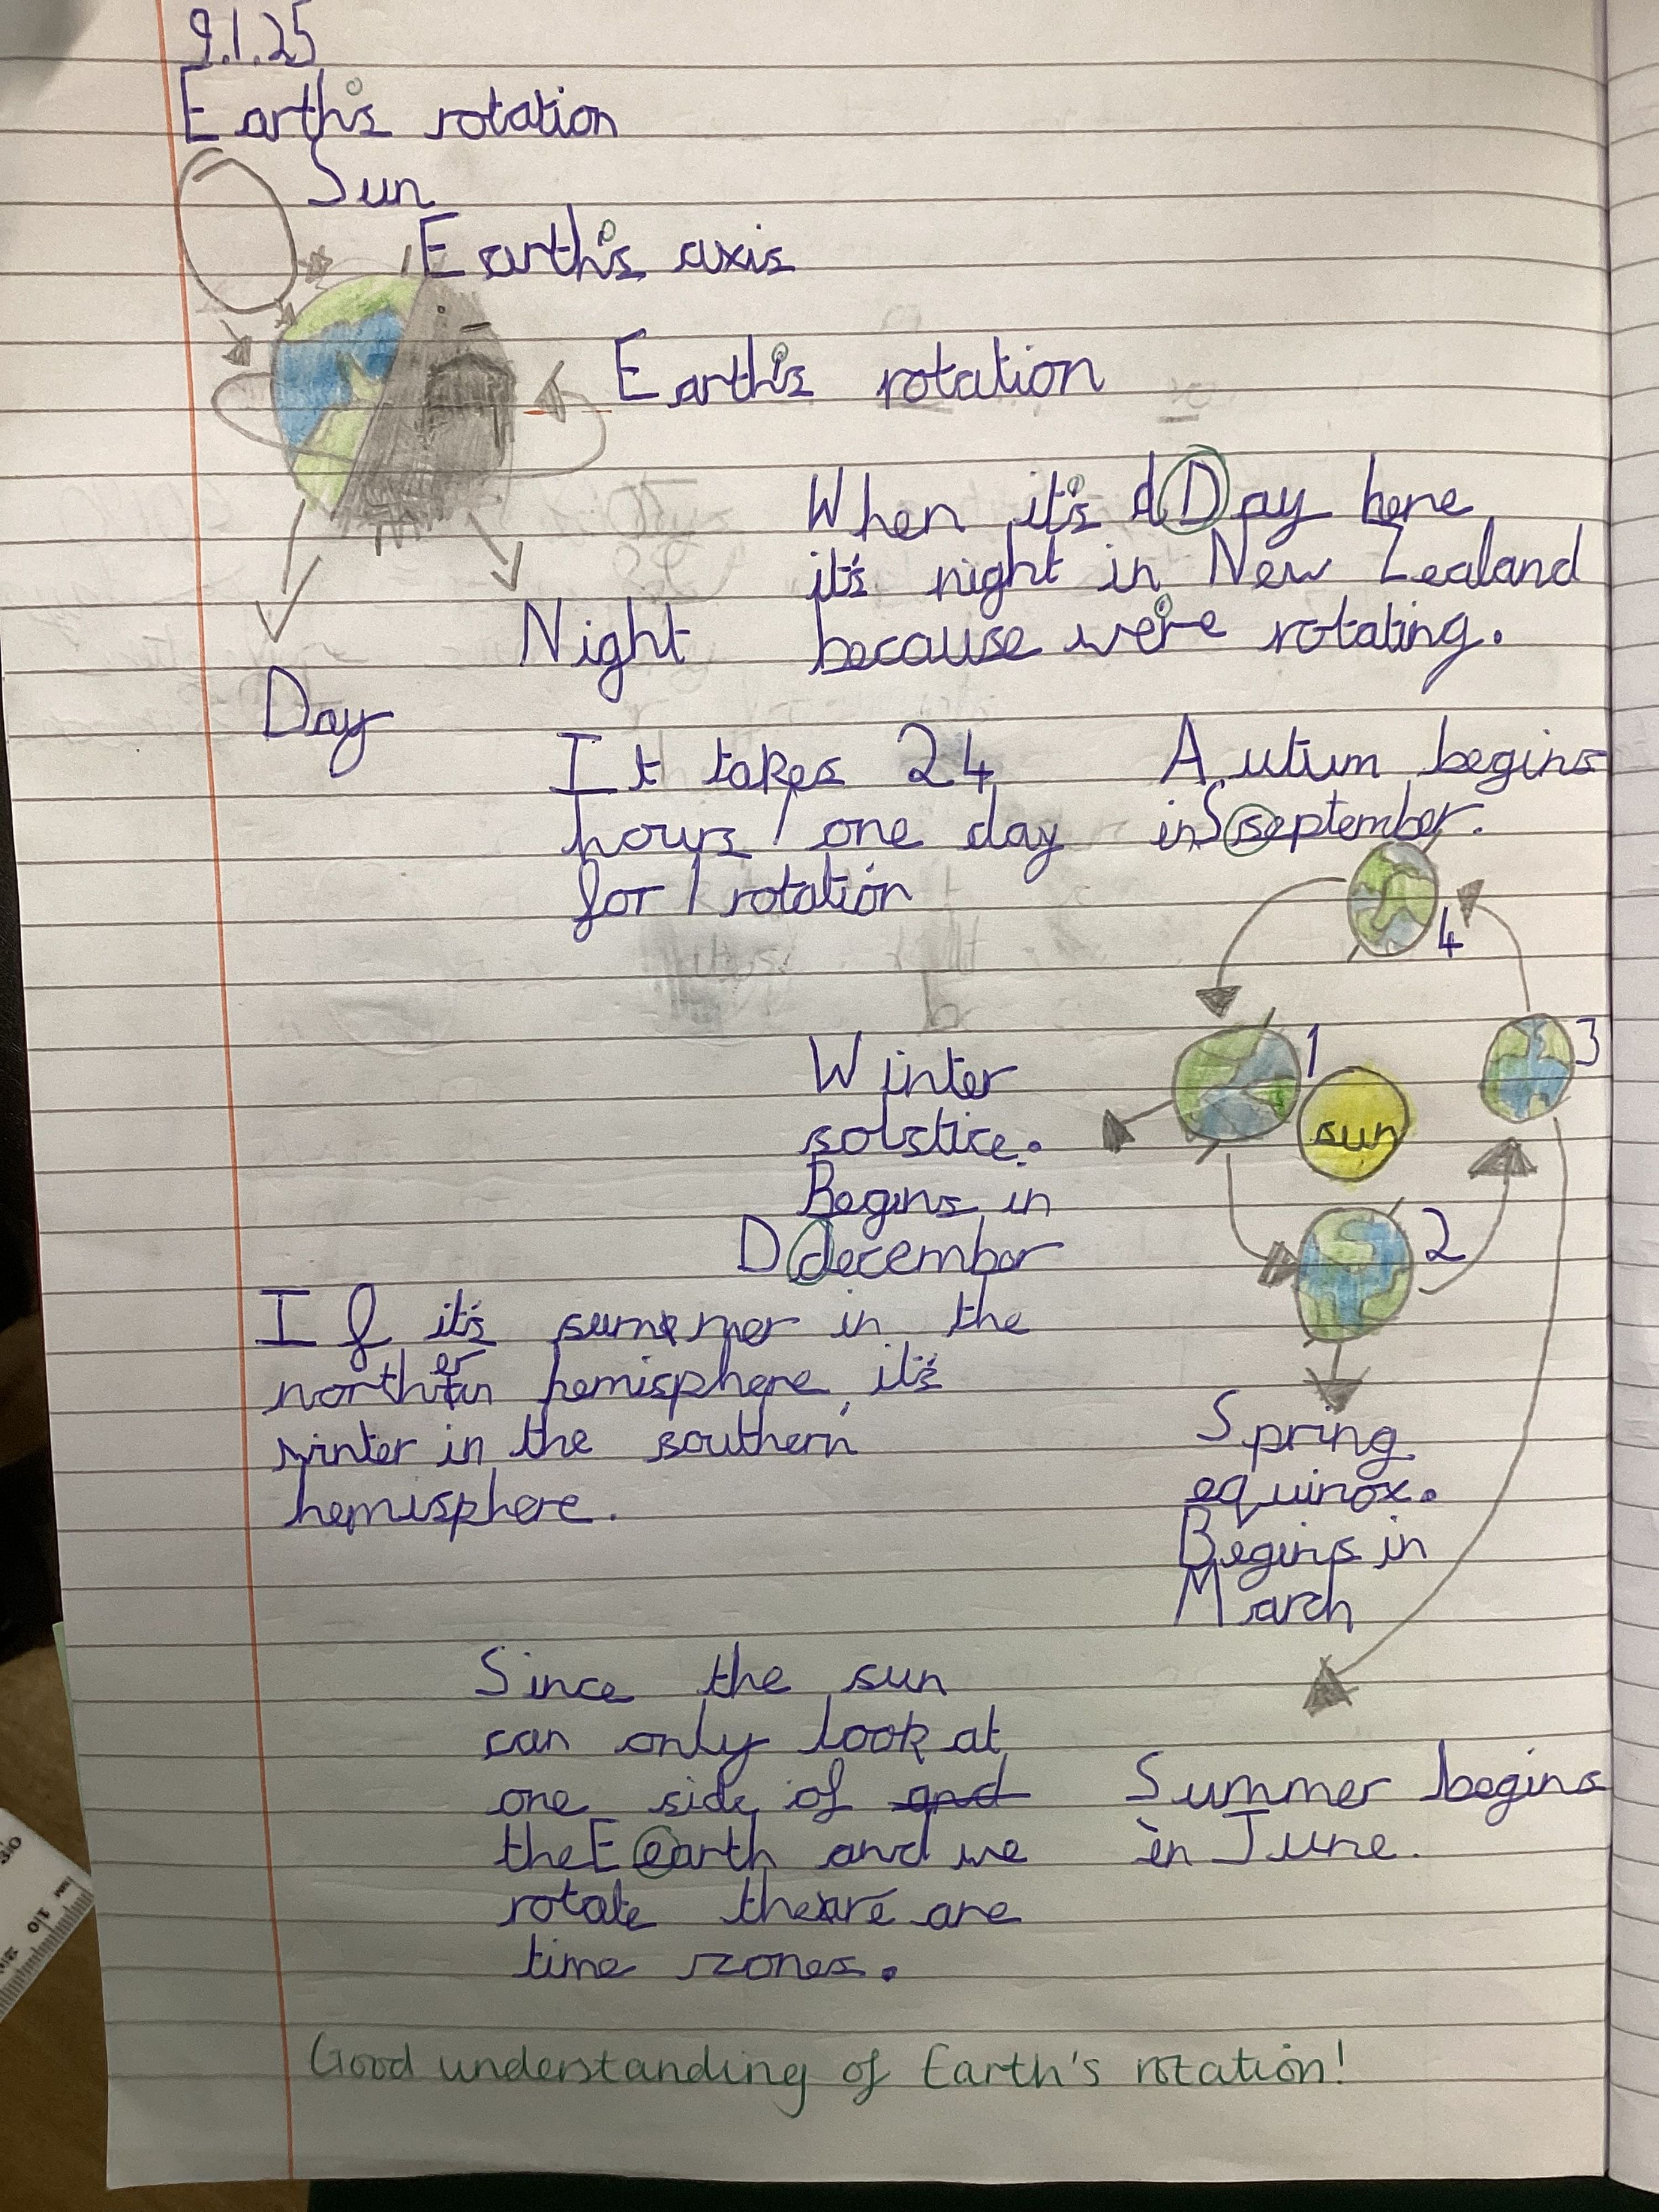 9.1.25
Earth's rotation
Sun
Earth's axis
Earth's rotation
When it's dDay here
it's night in New Zealand
because we're rotating.
Night
Day
It takes 24
hours / one day
for 1 rotation
Autium begins
in Sseptember.
4
3
1
sun
2
Winter
solstice.
Begins in
Ddecember
If it's summer in the
northern hemisphere, it's
winter in the southern
hemisphere.
Spring
equinox.
Begins in
March
Since the sun
can only look at
one side of and
the Eearth and we
rotate there are
time zones.
Summer begins
in June.
Good understanding of Earth's rotation!
30
mm
10
20